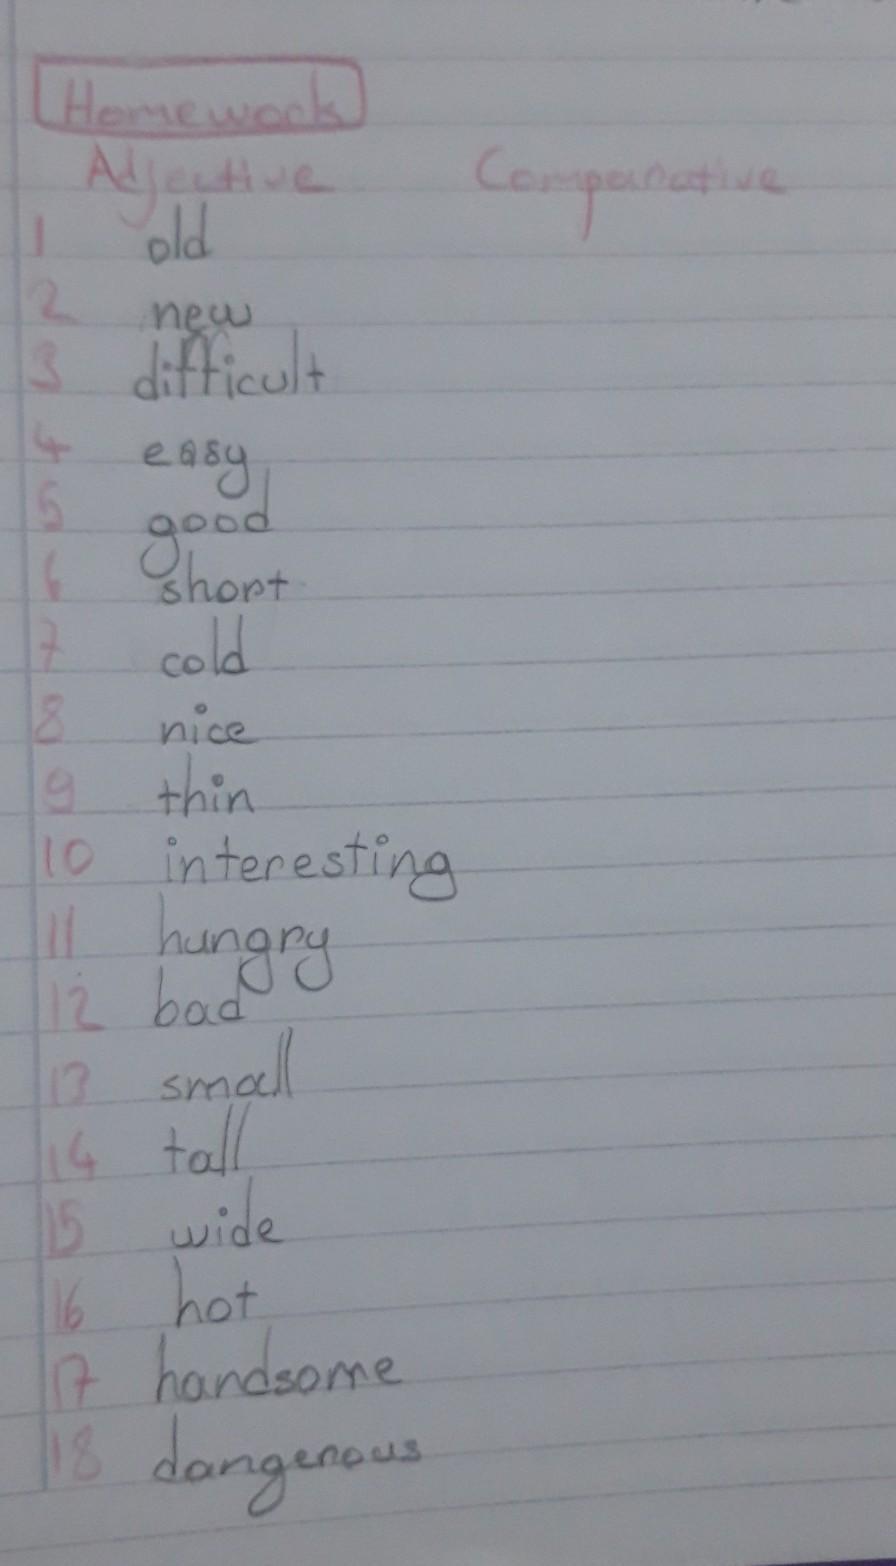 Homework
Adjective Comparative
1 old
2 new
3 difficult
4 easy
5 good
6 short
7 cold
8 nice
9 thin
10 interesting
11 hungry
12 bad
13 small
14 tall
15 wide
16 hot
17 handsome
18 dangerous